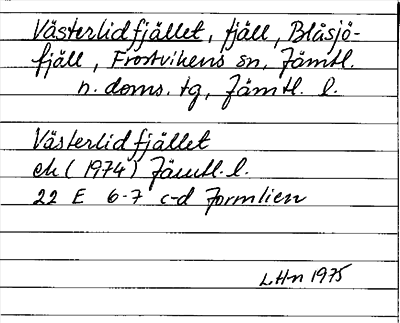 Västerlidfjället, fjäll, Blåsjö-
fjäll, Frostvikens sn, Jämtl.
n. doms. tg, Jämtl. l.
Västerlidfjället
ek (1974) Jämtl. l.
22 E 6-7 c-d Jormlien
LHn 1975